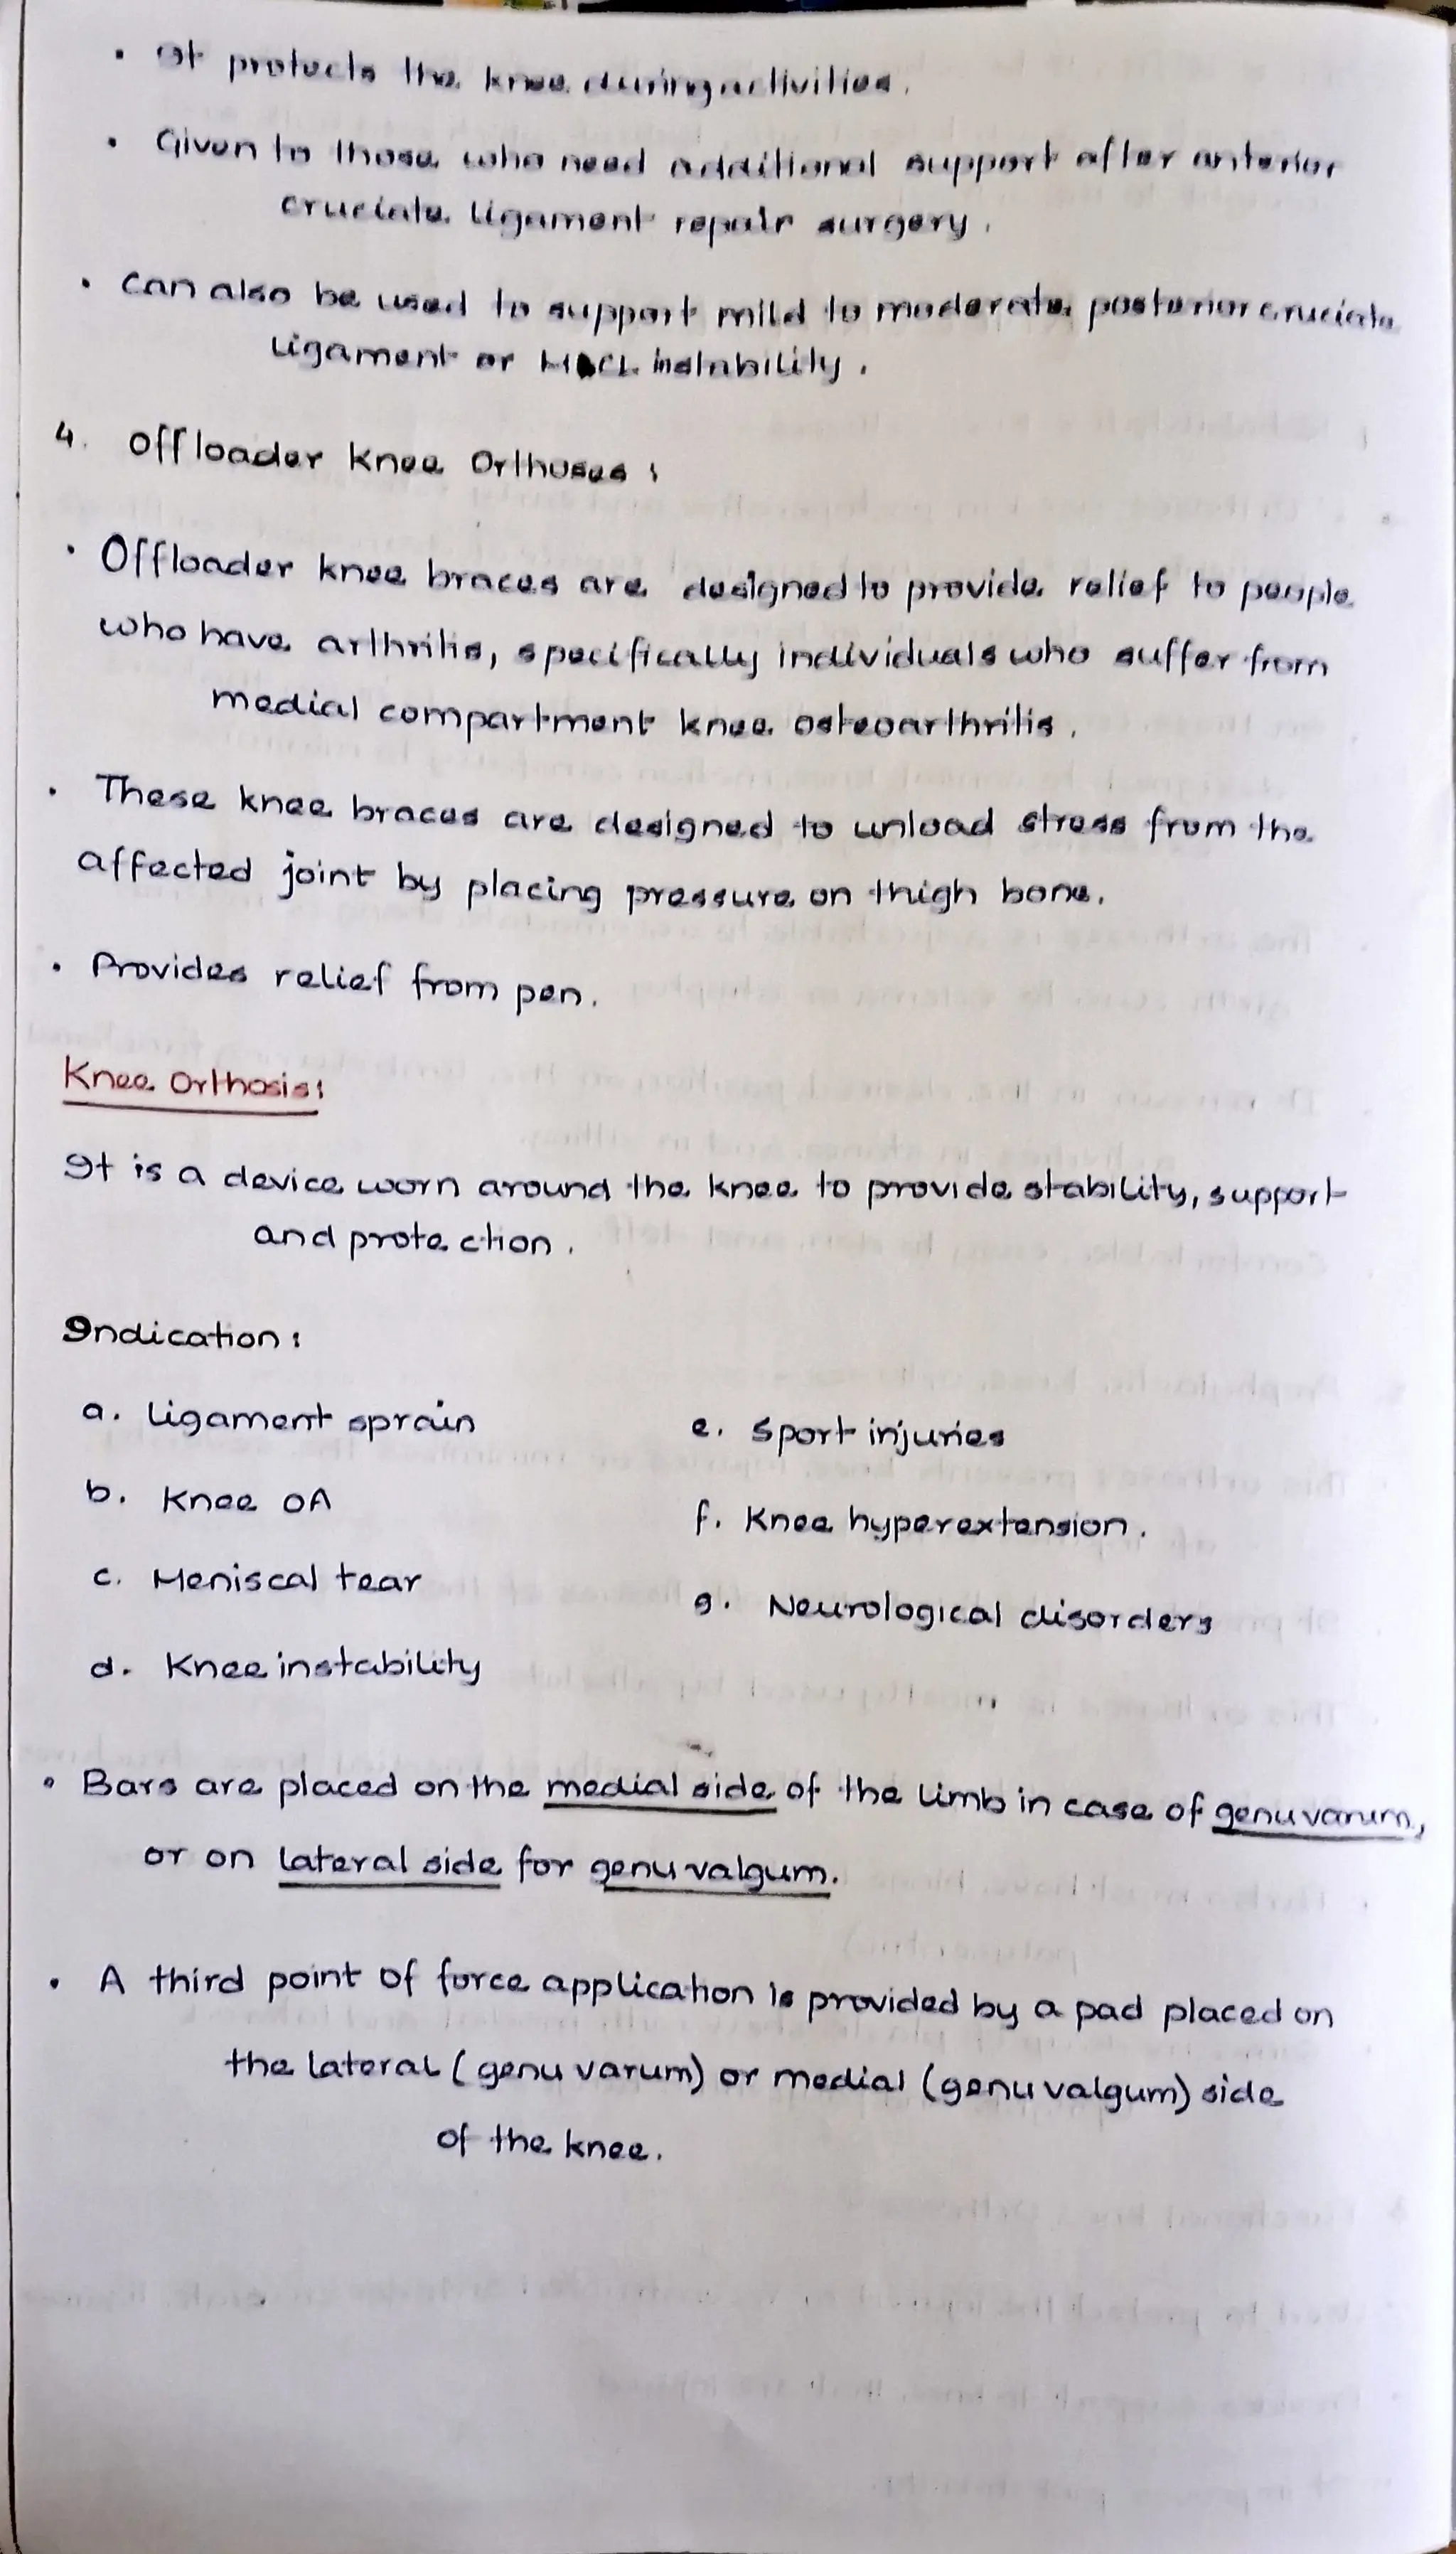 • It protects the knee during activities.
• Given to those who need additional support after anterior
cruciate ligament repair surgery.
• Can also be used to support mild to moderate posterior cruciate
ligament or MCL instability.
4. Offloader Knee Orthoses:
• Offloader knee braces are designed to provide relief to people
who have arthritis, specifically individuals who suffer from
medial compartment knee osteoarthritis.
• These knee braces are designed to unload stress from the
affected joint by placing pressure on thigh bone.
• Provides relief from pen.
Knee Orthosis:
It is a device worn around the knee to provide stability, support
and protection.
Indication:
a. Ligament sprain
b. Knee OA
c. Meniscal tear
d. Knee instability
e. Sport injuries
f. Knee hyperextension.
g. Neurological disorders
• Bars are placed on the medial side of the limb in case of genu varum,
or on lateral side for genu valgum.
• A third point of force application is provided by a pad placed on
the lateral (genu varum) or medial (genu valgum) side
of the knee.